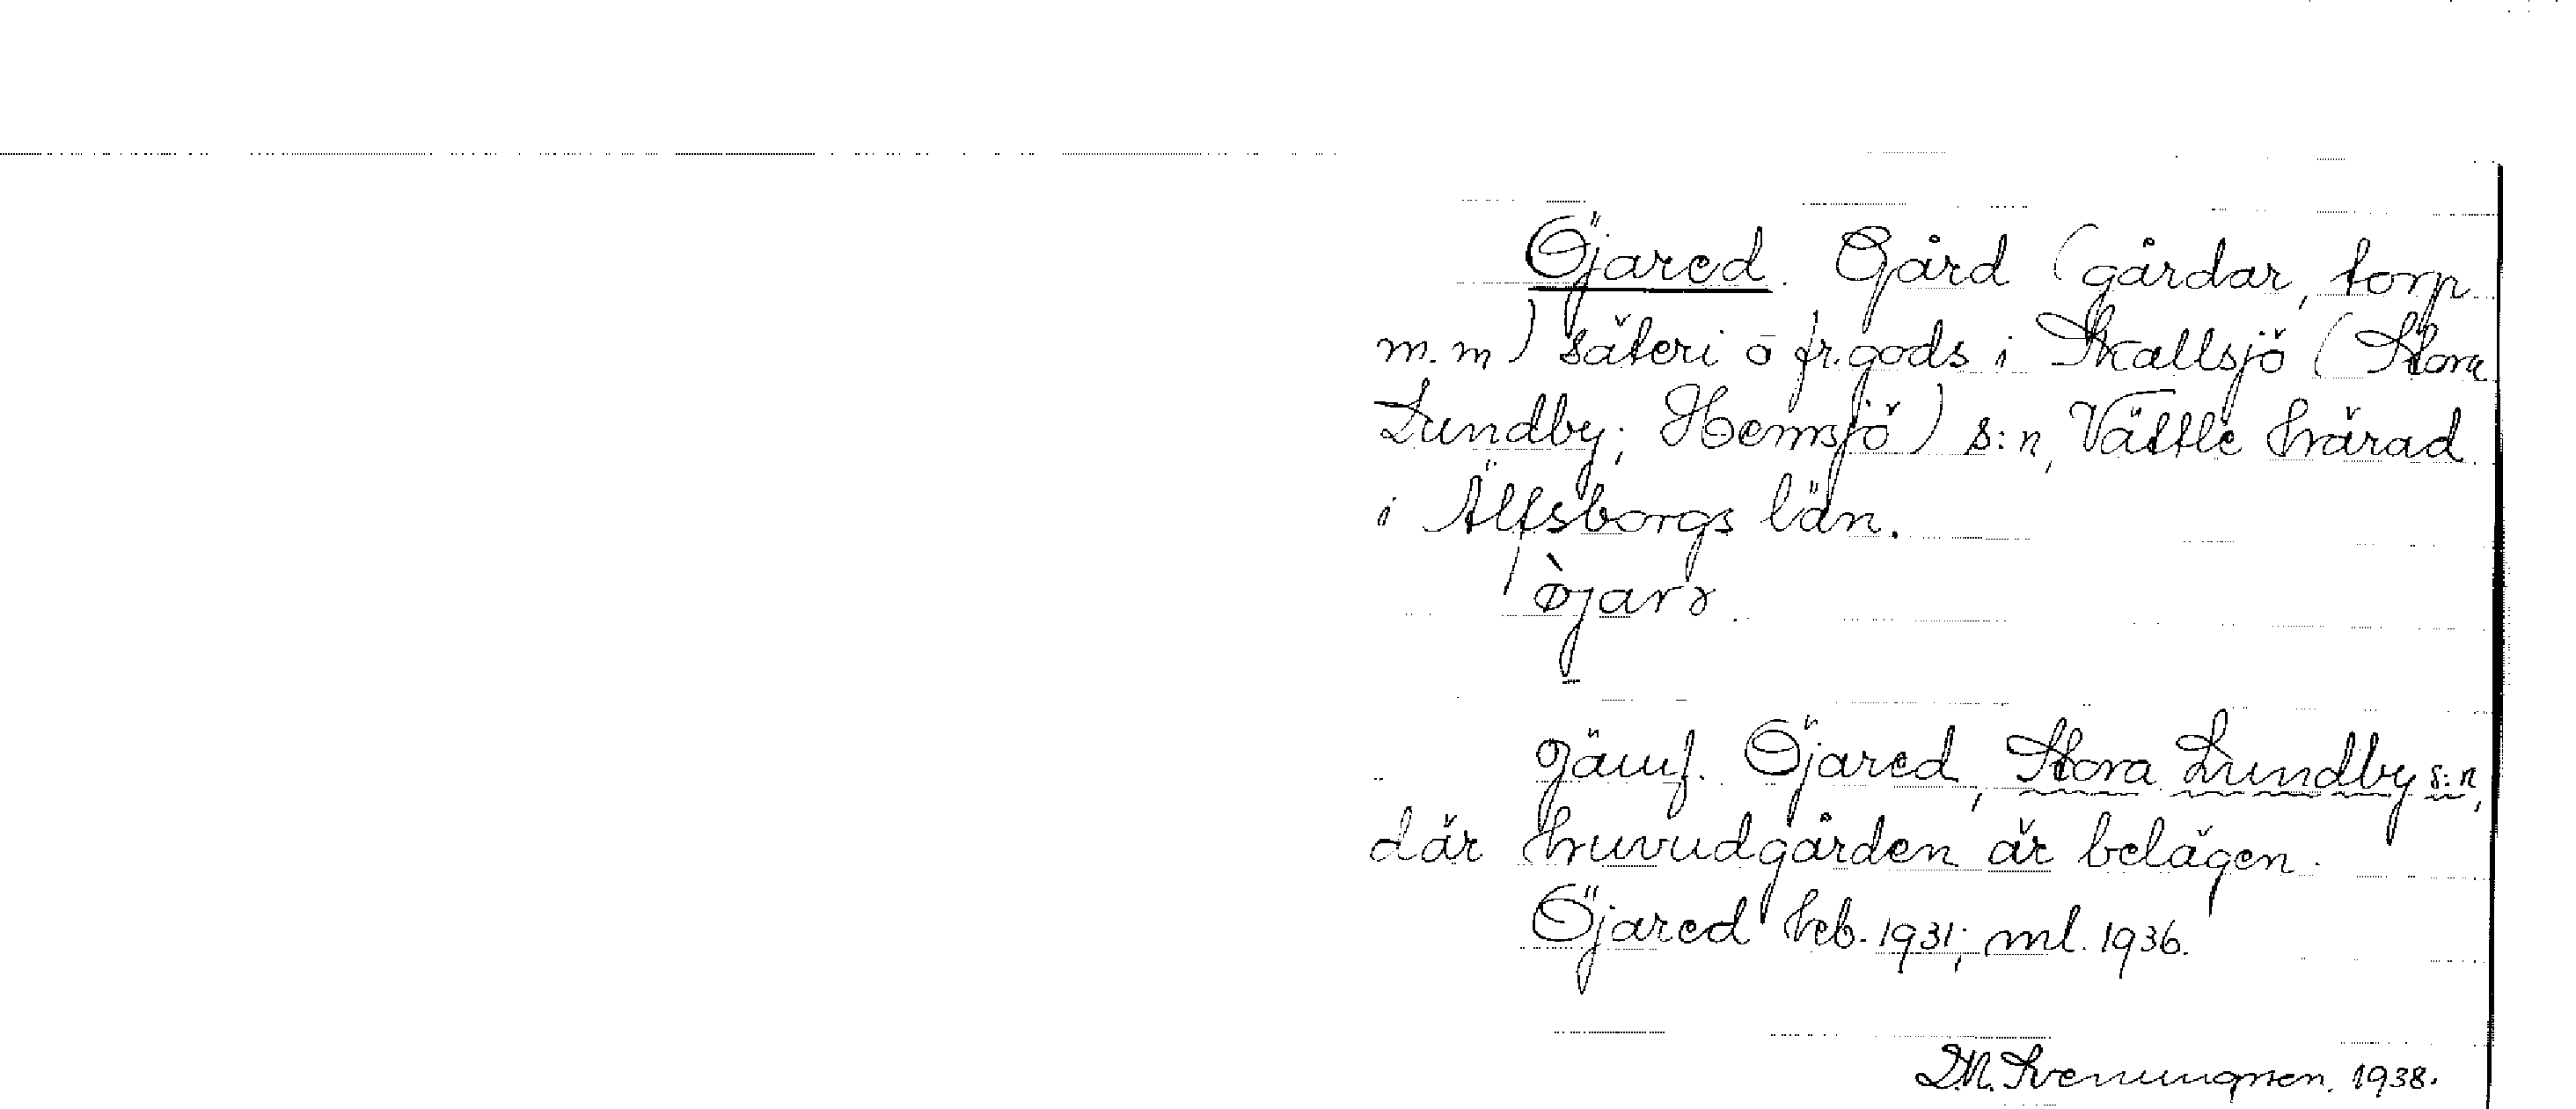 Öjared. Gård (gårdar, torp
m.m) säteri o fr.gods i Skallsjö (Stora
Lundby; Hemsjö) s:n, Vättle härad
i Älfsborgs län.
jämf. Öjared, Stora Lundby s:n,
där huvudgården är belägen.
Öjared heb. 1931; ml. 1936.
1938.